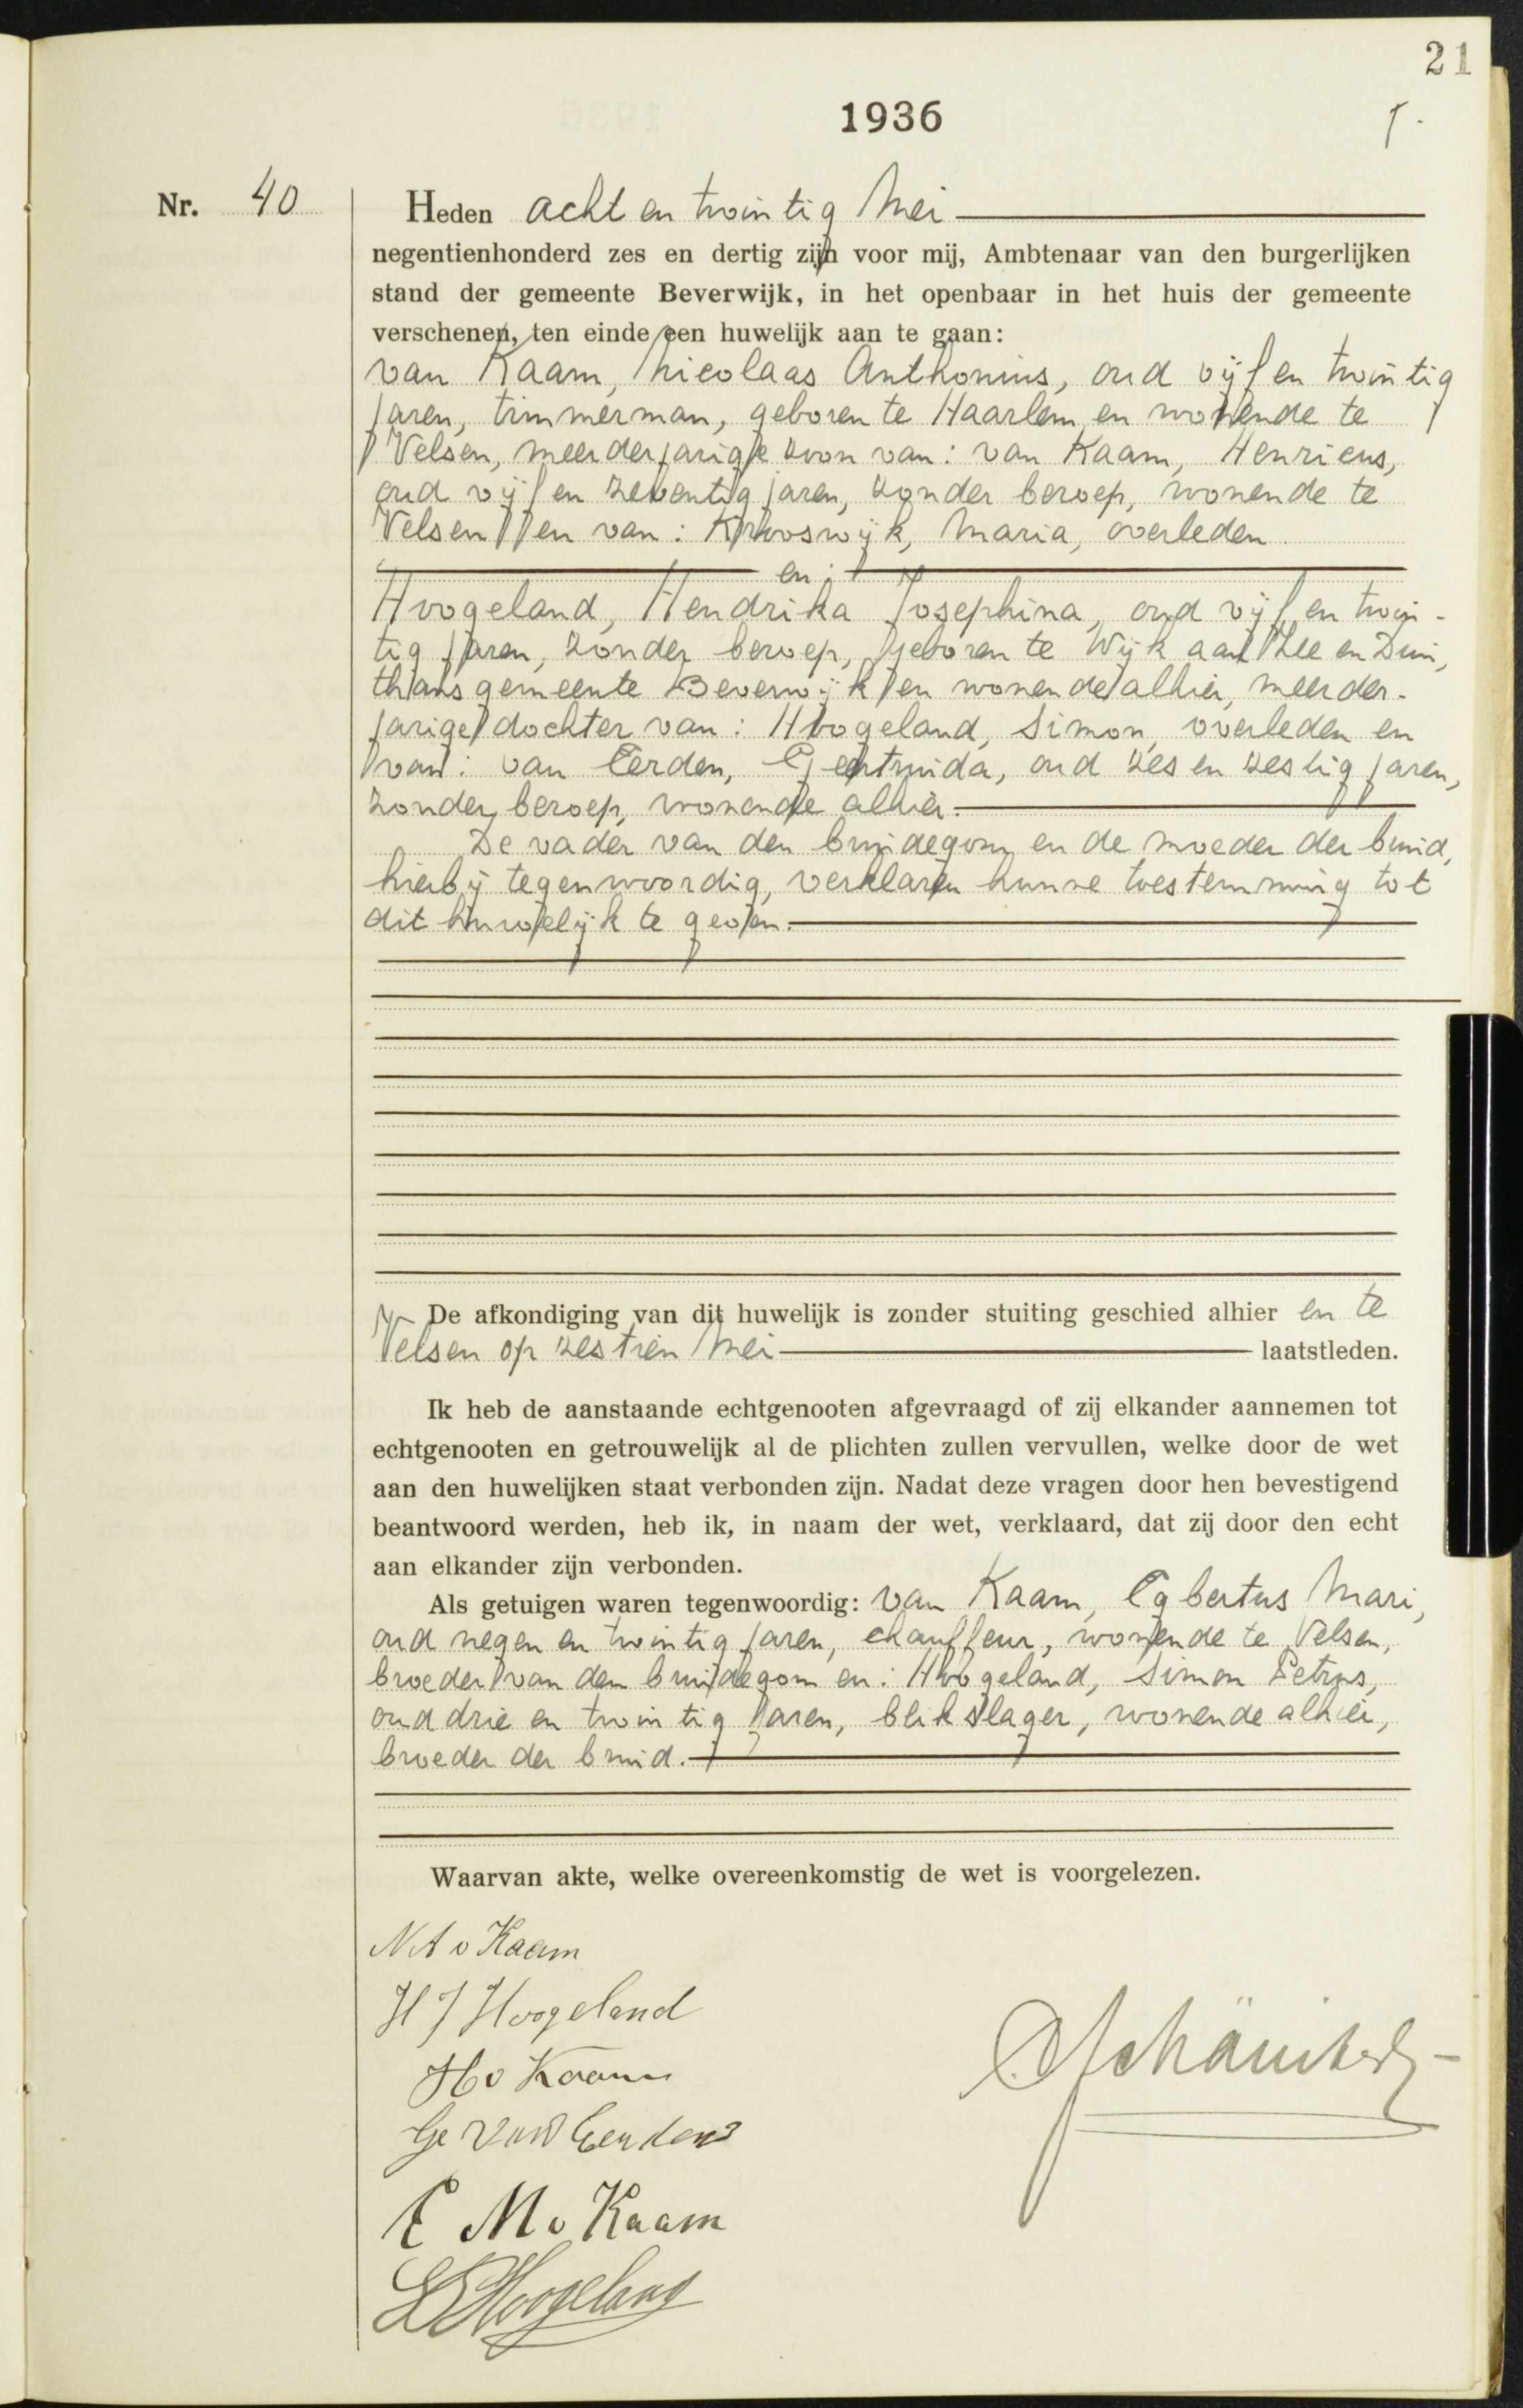 21
1936
Nr. 40
Heden acht en twintig Mei
negentienhonderd zes en dertig zijn voor mij, Ambtenaar van den burgerlijken
stand der gemeente Beverwijk, in het openbaar in het huis der gemeente
verschenen, ten einde een huwelijk aan te gaan:
van Kaam, Nicolaas Anthonius, oud vijf en twintig
jaren, timmerman, geboren te Haarlem en wonende te
Velsen, meerderjarige zoon van: van Kaam, Henricus,
oud vijf en zeventig jaren, zonder beroep, wonende te
Velsen en van: Krooswijk, Maria, overleden
en:
Hoogeland, Hendrika Josephina, oud vijf en twin-
tig jaren, zonder beroep, geboren te Wijk aan Zee en Duin,
thans gemeente Beverwijk en wonende alhier, meerder-
jarige dochter van: Hoogeland, Simon, overleden en
van: van Eerden, Geertruida, oud zes en zestig jaren,
zonder beroep, wonende alhier.
De vader van den bruidegom en de moeder der bruid,
hierbij tegenwoordig, verklaren hunne toestemming tot
dit huwelijk te geven.
De afkondiging van dit huwelijk is zonder stuiting geschied alhier en te
Velsen op zestien Mei laatstleden.
Ik heb de aanstaande echtgenooten afgevraagd of zij elkander aannemen tot
echtgenooten en getrouwelijk al de plichten zullen vervullen, welke door de wet
aan den huwelijken staat verbonden zijn. Nadat deze vragen door hen bevestigend
beantwoord werden, heb ik, in naam der wet, verklaard, dat zij door den echt
aan elkander zijn verbonden.
Als getuigen waren tegenwoordig: van Kaam, Egbertus Mari,
oud negen en twintig jaren, chauffeur, wonende te Velsen,
broeder van den bruidegom en: Hoogeland, Simon Petrus,
oud drie en twintig jaren, blikslager, wonende alhier,
broeder der bruid.
Waarvan akte, welke overeenkomstig de wet is voorgelezen.
N A v Kaam
H J Hoogeland
H v Kaam
Ge van Eerden
E M v Kaam
S P Hoogeland